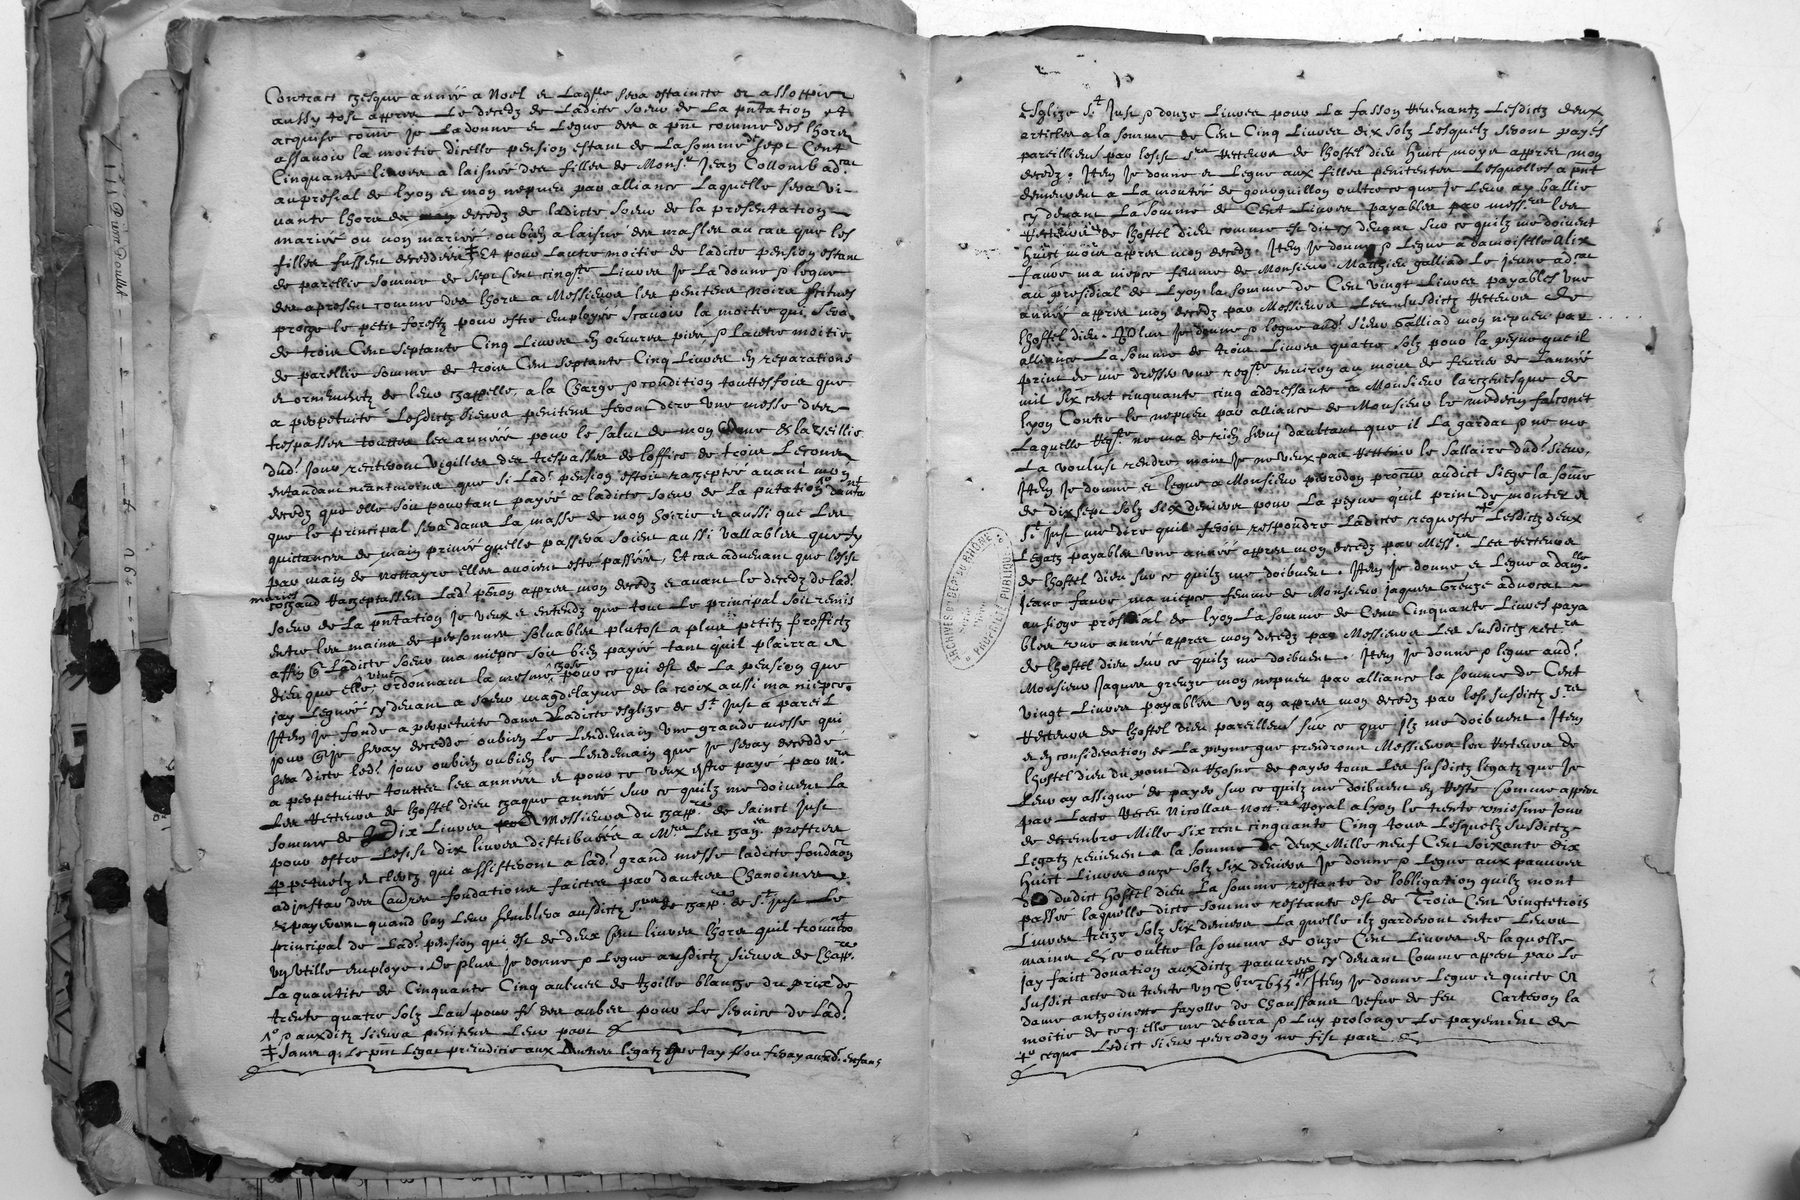 Contract chesque année a Noel et Laqlle sera estaincte et assoppie
aussy tost appres Le decedz de Ladicte soeur de La pntation et
acquise come je La donne et Legue des a pnt comme des lhors
assavoir la moitie dicelle pension estant de La somme de sept Cent
Cinquante livres a laisnée des filles de Monsr Jean Collomb adcat
au presial de lyon et mon nepveu par alliance Laquelle sera vi-
vante lhors du decedz de ladicte soeur de la presentation
mariée ou non mariée, ou bien a laisne des masles au cas que les
filles fussent decedées Et pour Lautre moitie de ladicte pension estant
de pareille somme de sept Cent cinqte Livres je La donne & legue
des apresent comme des lhors a Messieurs les penitens noirs
proche le petit forestz pour estre employée scavoir la moitie qui sera
de trois Cent Septante Cinq Livres en oeuvres pies, & Lautre moitie
de pareille somme de trois Cent Septante Cinq Livres en reparations
et ornementz de leur chappelle, a la Charge & condition touttesfois que
a perpetuité Lesdictz sieurs penitens feront dire une messe des
trespasses touttes les années pour le salut de mon ame et la veille
dud. jour reciteront vigilles des trespasses de loffice de trois Lecons
entandant neantmoins que si Lad. pension estoit racheptée avant mon
decedz que elle soit pourtant payée a ladicte soeur de La pntation
que le principal sera dans La masse de mon hoirie et aussi que Les
quictances de main privée quelle passera soient aussi vallables que sy
par main de nottayre elles avoient esté passées, Et cas advenant que lesd
rachaptassent Lad. pesion appres mon decedz et avant le decedz de lad.
soeur de La pntation je veux et entendz que tout Le principal soit remis
entre les mains de personnes solvables plutost a plus petitz proffictz
affin q Ladicte soeur ma niepce soit bien payée tant quil plairra a
dieu que elle vive, ordonnant la mesme chose pour ce qui est de La pension que
jay Leguée cy devant a soeur magdelayne de la croix aussi ma niepce.
Item je fonde a perpetuite dans Ladicte esglize de St Just a pareil
jour q je seray decedde oubien Le Lendemain Une grande messe qui
sera dicte led. jour oubien oubien le Lendemain que je seray decedde
a perpetuitte touttes les années et pour ce veux estre payé par mrs
Les Recteurs de lhostel dieu chaque année sur ce quilz me doivent La
somme de Dix Livres a Messieurs du chapp. de Sainct Just
pour estre Lesd. dix livres distribuées a Mrs Les chan. prestres
ppetuelz et clercz qui assisteront a lad. grand messe ladicte fondaon
adjnstar des autres fondations faictes par dautres Chanoines
et payeront quand bon Leur semblera ausdictz srs de chapp. de St Just Le
principal de Lad. pension qui est de deux Cent livres lhors quil trouveront
un utille employe. De plus je donne & Legue ausdictz sieurs de Chapp.
La quantite de Cinquante Cinq aulnes de thoille blanche du prix de
trente quatre Solz Laun pour fe des aubes pour Le service de Lad.
& auxditz sieurs penitens Leur part
sans q. Le pnt Legat preiudicie aux autres legatz que jay f ou feray auxd. enfans
Esglize St Just & douze Livres pour La fasson Revenantz Lesdictz deux
articles a la somme de Cent Cinq Livres dix solz Lesquelz seront payés
pareillemt par lesd srs Recteurs de lhostel dieu huict moys appres mon
decedz. Item je donne et Legue aux filles penitentes Lesquelles a pnt
demeurent a La montée de gourguillon oultre ce que je Leur ay baillie
cy devant La somme de Cent Livres payables par messrs les
Recteurs de lhostel dieu comme est dit cy devant sur ce quilz me doivent
huict mois appres mon decedz. Item je donne & Legue a damoiselle Alix
favre ma niepce femme de Monsieur Mathieu galliad Le jeune adcat
au presidial de Lyon la somme de Cent vingt Livres payables une
année appres mon decedz par Messieurs Les susdictz Recteurs de
lhostel dieu. Plus je donne & legue aud. Sieur Galliad mon nepveu par
alliance La somme de trois Livres quatre solz pour la peyne que il
print de me dresser une reqte environ au mois de febvrier de Lannée
mil six cent cinquante cinq addressante a Monsieur larchevesque de
lyon Contre le nepveu par alliance de Monsieur le medecin falconet
Laquelle Reqte ne ma de rien servi daultant que il La gardat & ne me
La voulust rendre, mais je ne veux pas Rettenir le sallaire dud. Sieur.
Item je donne et legue a Monsieur pierodon procur audict Siege la some
de dix sept solz six deniers pour La peyne quil print de monter a
St Just me dire quil feroit respondre Ladicte requeste Lesdictz deux
Legatz payables une année appres mon decedz par Messrs Les Recteurs
de lhostel dieu sur ce quilz me doibvent. Item je donne et Legue a damlle
jeane favre ma niepce femme de Monsieur jaques Greuze advocat
au siege presidial de lyon La somme de Cent Cinquante Livres paya
bles une année appres mon decedz par Messieurs Les Susdictz rectrs
de lhostel dieu sur ce quilz me doibvent. Item je donne & legue aud.
Monsieur Jaques greuze mon nepveu par alliance la somme de Cent
vingt Livres payables un an appres mon decedz par lesd. susdictz srs
Recteurs de lhostel dieu pareillemt sur ce que jlz me doibvent. Item
et en consideration de La peyne que prendront Messieurs les Recteurs de
lhostel dieu du pont du Rhosne de payer tous Les susdictz legatz que je
Leur ay assigné de payer sur ce quilz me doibvent en Reste comme appert
par Lacte Receu Nicollas nottre Royal a lyon le trente uniesme jour
de decembre Mille six cent cinquante Cinq tous Lesquelz susdictz
Legatz reviennent a la somme de deux Mille neuf Cent soixante dix
huict Livres onze solz six deniers je donne & Legue aux pauvres
dudict hostel dieu La somme restante de lobligation quilz mont
passée laquelle dicte somme restante est de Trois Cent vingtetrois
Livres treize solz six deniers Laquelle ilz garderont entre Leurs
mains et ce oultre la somme de onze Cent Livres de laquelle
jay faict donation auxdictz pauvres cy devant Comme appert par Le
susdict acte du trente un xbre 1655. Item je donne Legue et quicte a
dame anthoinette fayolle de Chaussans vefve de feu Carteron la
moitie de ce q elle me debvra & Luy prolonge Le payement de
ceque Ledict sieur pierodon ne fist pas
ARCHIVES DU DEPt DU RHONE
PAPIER LE PUBLIQUE